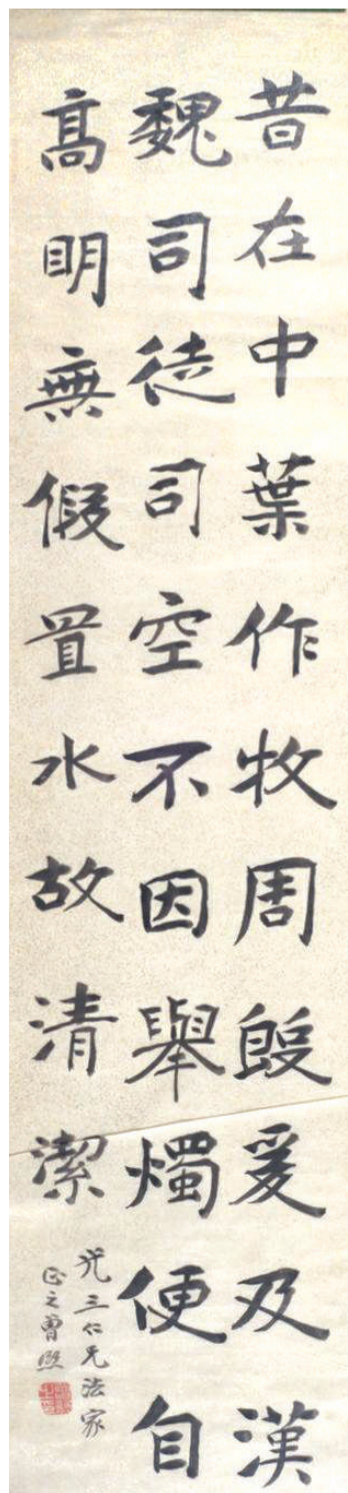 昔在中葉作牧周殷爰及漢
魏司徒司空不因舉燭便自
高明無假置水故清潔
三仁兄法家
正之曹熙